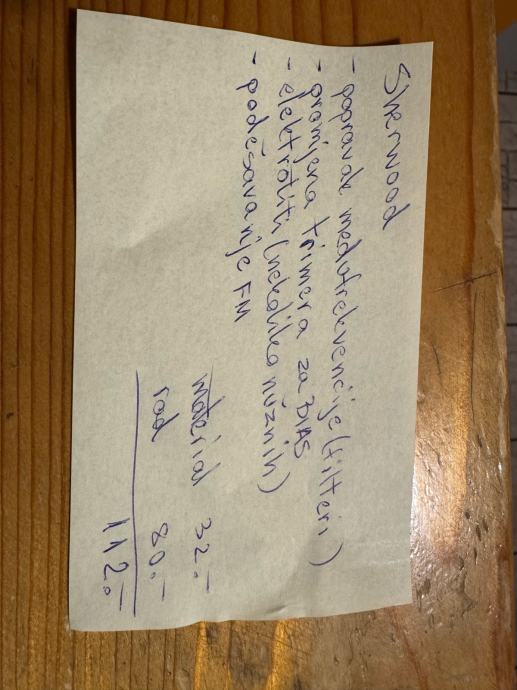 Sherwood
- popravak međufrekvencije (filteri)
- promjena trimera za BIAS
- elektroliti (nekoliko nužnih)
- podešavanje FM
material 32.-
rad 80.-
112.-